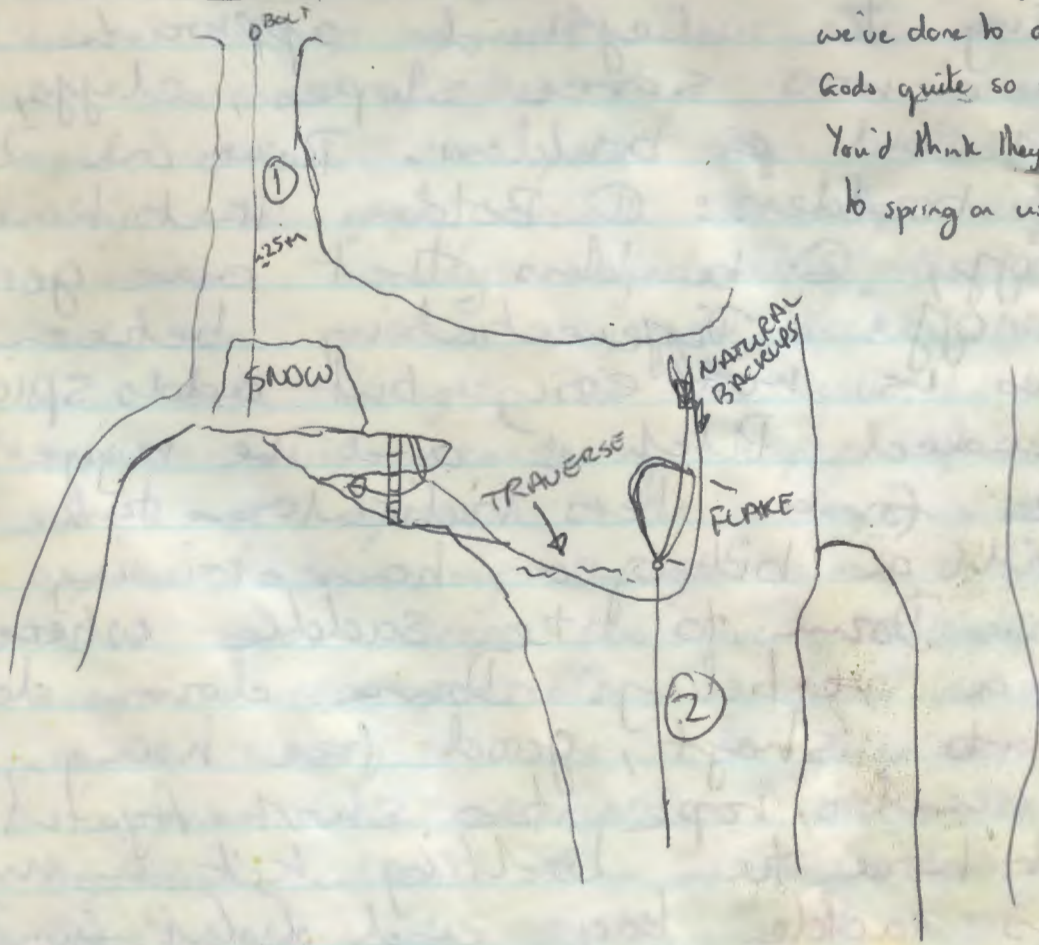 we've done to
Gods quite so
You'd think they
to spring on us
BOLT
①
~25m
SNOW
NATURAL
BACKUPS
TRAVERSE
FLAKE
②